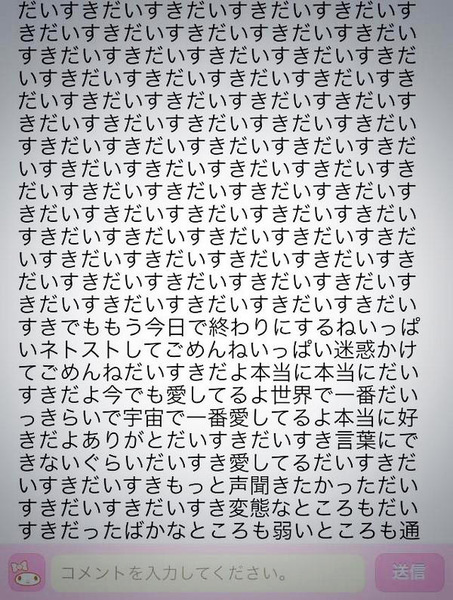 だいすきだいすきだいすきだいすきだいす
きだいすきだいすきだいすきだいすきだい
すきだいすきだいすきだいすきだいすきだ
いすきだいすきだいすきだいすきだいすき
だいすきだいすきだいすきだいすきだいす
きだいすきだいすきだいすきだいすきだい
すきだいすきだいすきだいすきだいすきだ
いすきだいすきだいすきだいすきだいすき
だいすきだいすきだいすきだいすきだいす
きだいすきだいすきだいすきだいすきだい
すきだいすきだいすきだいすきだいすきだ
いすきだいすきだいすきだいすきだいすき
だいすきだいすきだいすきだいすきだいす
きだいすきだいすきだいすきだいすきだい
すきでももう今日で終わりにするねいっぱ
いネトストしてごめんねいっぱい迷惑かけ
てごめんねだいすきだよ本当に本当にだい
すきだよ今でも愛してるよ世界で一番だい
っきらいで宇宙で一番愛してるよ本当に好
きだよありがとだいすきだいすき言葉にで
きないぐらいだいすき愛してるだいすきだ
いすきだいすきもっと声聞きたかっただい
すきだいすきだいすき変態なところもだい
すきだったばかなところも弱いところも通
コメントを入力してください。
送信